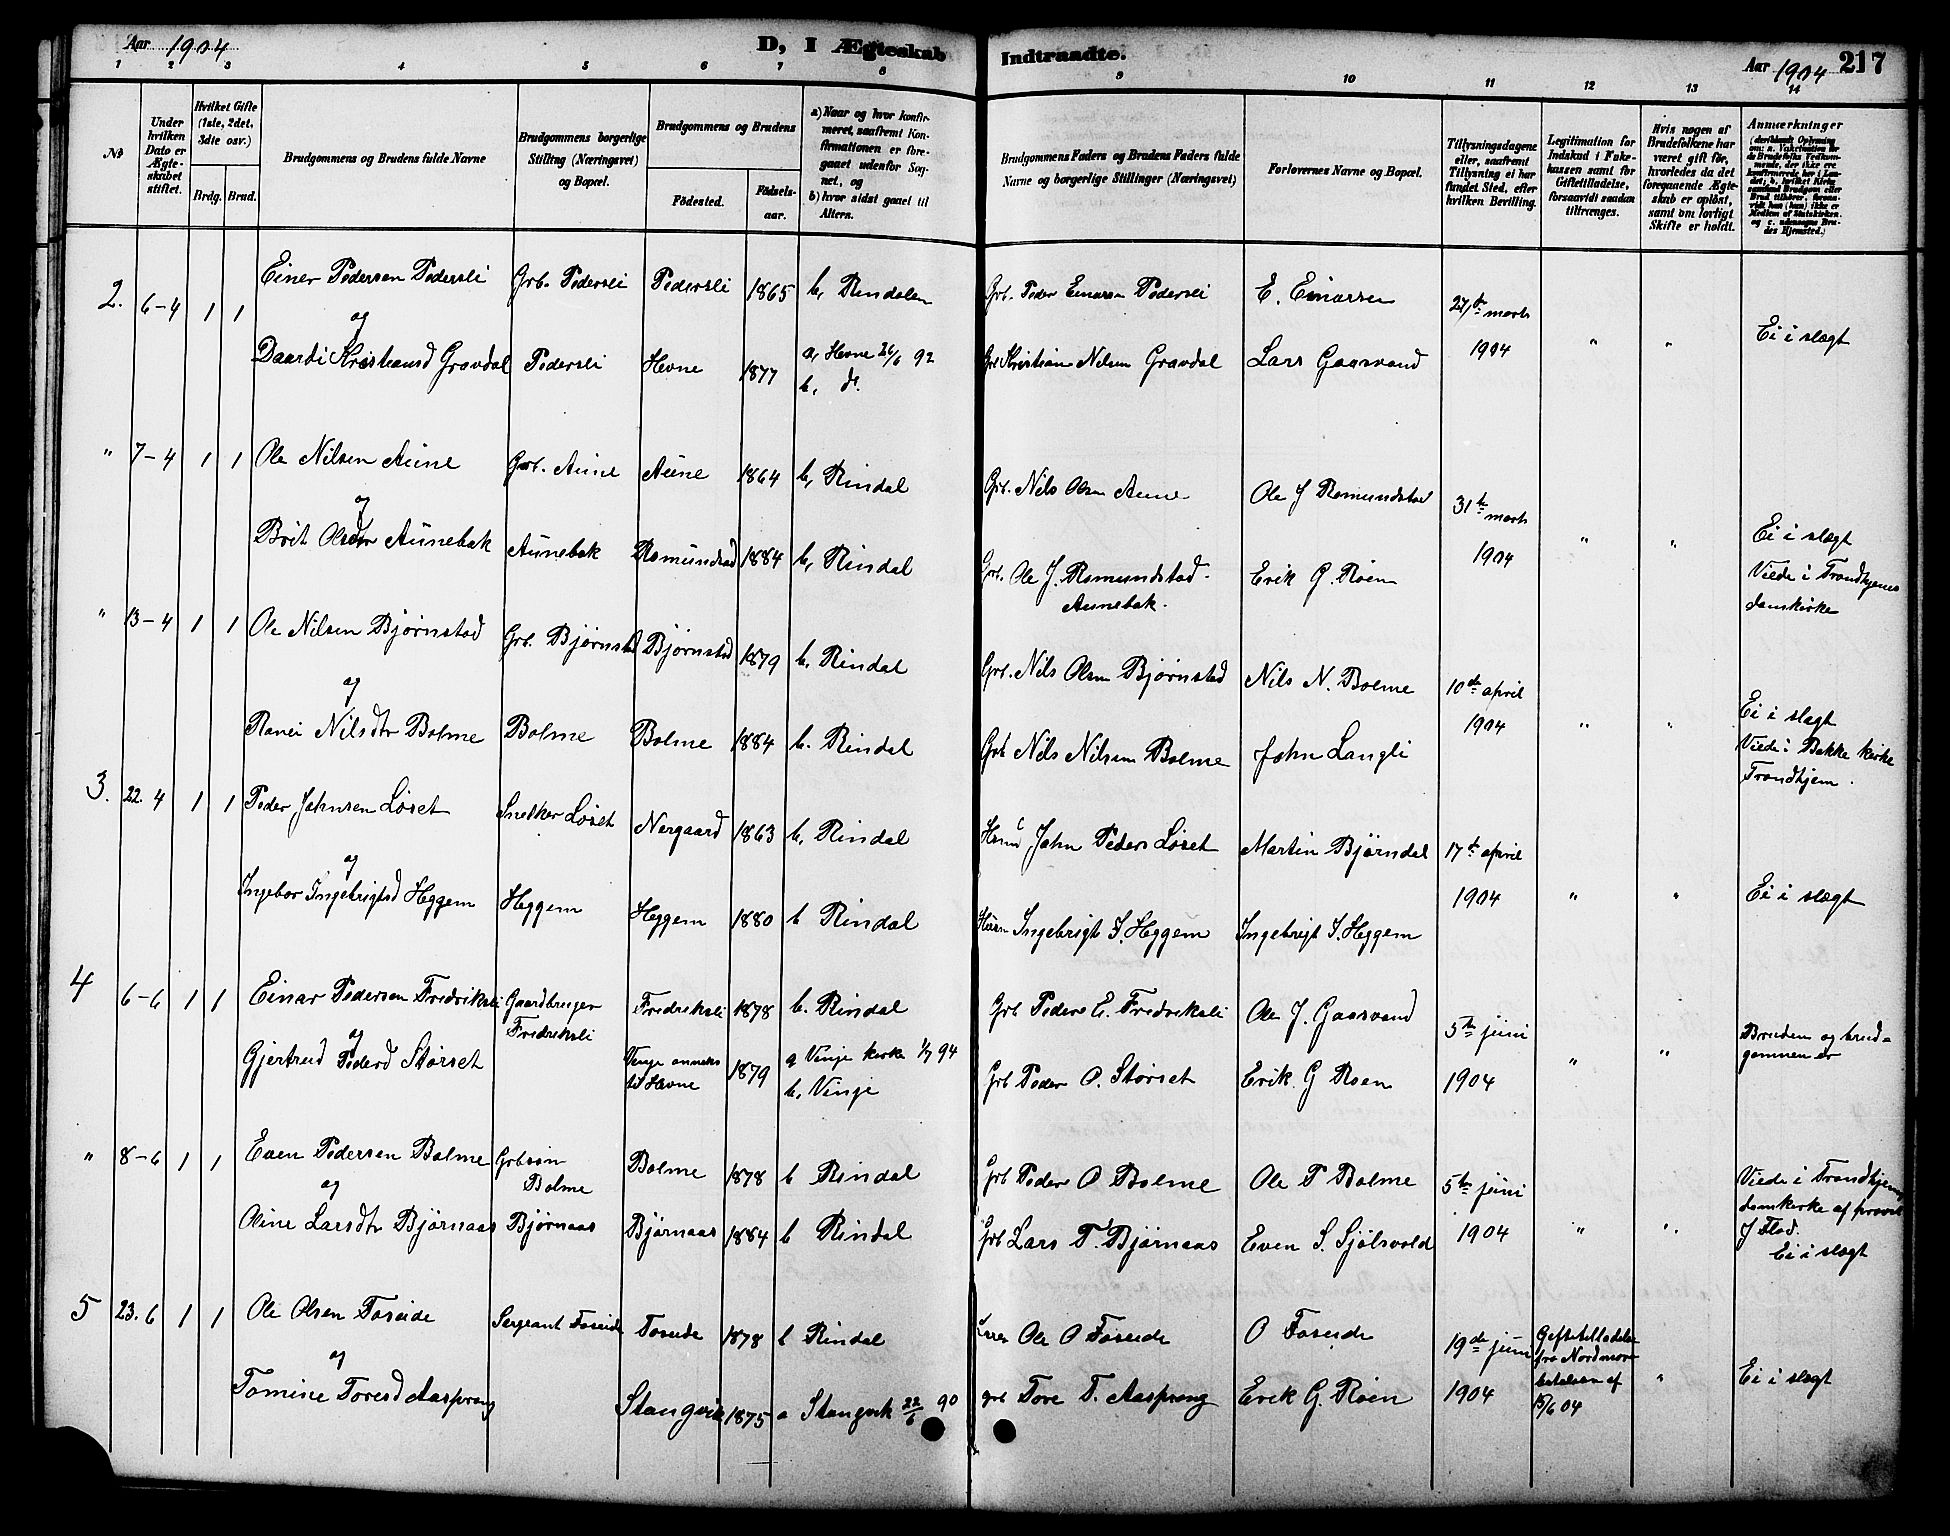 Aar 1904 D, I Ægteskab Indtraadte. Aar 1904 217
1 2 3 4 5 6 7 8 9 10 11 12 13 14
№
Under hvilken Dato er Ægteskabet stiftet.
Hvilket Gifte (1ste, 2det, 3dte osv.)
Brdg. Brud.
Brudgommens og Brudens fulde Navne
Brudgommens borgerlige Stilling (Næringsvei) og Bopæl.
Brudgommens og Brudens
Fødested. Fødselsaar.
a) Naar og hvor konfirmeret, saafremt Konfirmationen er foregaaet udenfor Sognet, og
b) hvor sidst gaaet til Alters.
Brudgommens Faders og Brudens Faders fulde Navne og borgerlige Stillinger (Næringsvei)
Forlovernes Navne og Bopæl.
Tillysningsdagene eller, saafremt Tillysning ei har fundet Sted, efter hvilken Bevilling.
Legitimation for Indskud i Enkekassen samt for Giftetilladelse, forsaavidt saadan tiltrænges.
Hvis nogen af Brudefolkene har været gift før, hvorledes da det foregaaende Ægteskab er opløst, samt om lovligt Skifte er holdt.
Anmærkninger
2. 6-4 1 1 Einer Pedersen Pedersli Grb. Pedersli Pedersli 1865 b, Rindalen Grb. Peder Einarsen Pedersli E. Einarsen 27de marts
og
Daardi Kristiansd Gravdal Pedersli Hevne 1877 a, Hevne 26/6 92 Grb Kristian Nilsen Gravdal Lars Gaasvand 1904 " " Ei i slægt
b, do.
" 7-4 1 1 Ole Nilsen Aune Grb. Aune Aune 1864 b, Rindal Grb. Nils Olsen Aune Ole J Romundstad 31te marts
og
Brit Olsdtr Aunebak Aunebak Romundstad 1884 b, Rindal Grb. Ole J. Romundstad Erik G. Roen 1904 " " Ei i slægt
Aunebak. Viede i Trondhjems
domkirke
" 13-4 1 1 Ole Nilsen Bjørnstad Grb. Bjørnstad Bjørnstad 1879 b, Rindal Grb. Nils Olsen Bjørnstad Nils N. Bolme 10de april
og
Ranei Nilsdtr Bolme Bolme Bolme 1884 b. Rindal Grb Nils Nilsen Bolme John Langli 1904 " " Ei i slægt
Viede i Bakke kirke
Trondhjem.
3. 22.4 1 1 Peder Johnsen Løset Snelker Løset Nergaard 1863 b, Rindal John Peders Løset Martin Bjørndal 17de april
og
Ingebor Ingebrigtsd Heggem Heggem Heggem 1880 b Rindal Ingebrigt I. Heggem Ingebrigt I. Heggem 1904 " " Ei i slægt
4 6-6 1 1 Einar Pedersen Fredriksli Gaardbruger Fredriksli Fredriksli 1878 b. Rindal Grb Peder E. Fredriksli Ole J. Gaasvand 5te juni
og
Gjertrud Pedersd Størset Vinje anneks til Hevne 1879 a Vinje kirke 1/7 94 Grb Peder O. Størset Erik. G Roen 1904 " " Bruden og brud=
b, Vinje gommen er
" 8-6 1 1 Even Pedersen Bolme Grbsøn Bolme Bolme 1878 b Rindal Grb Peder O Bolme Ole P Bolme 5te juni
og
Oline Larsdtr Bjørnaas Bjørnaas Bjørnaas 1884 b Rindal Grb Lars T. Bjørnaas Even S. Sjølsvold 1904 " " Viede i Trondhjems
domkirke af provst
J Flod.
Ei i slægt
5 23.6 1 1 Ole Olsen Foseide Sergeant Foseide Foseide 1878 b Rindal Ole O Foseide O Foseide 19de juni Giftetilladelse
og
fra Nordmøre
Tomine Toresd Aasprong Stangvik 1875 a Stangvik 22/6 90 grb Tore T. Aasprong Erik G. Roen 1904 bataljon af 15/6 04 " Ei i slægt